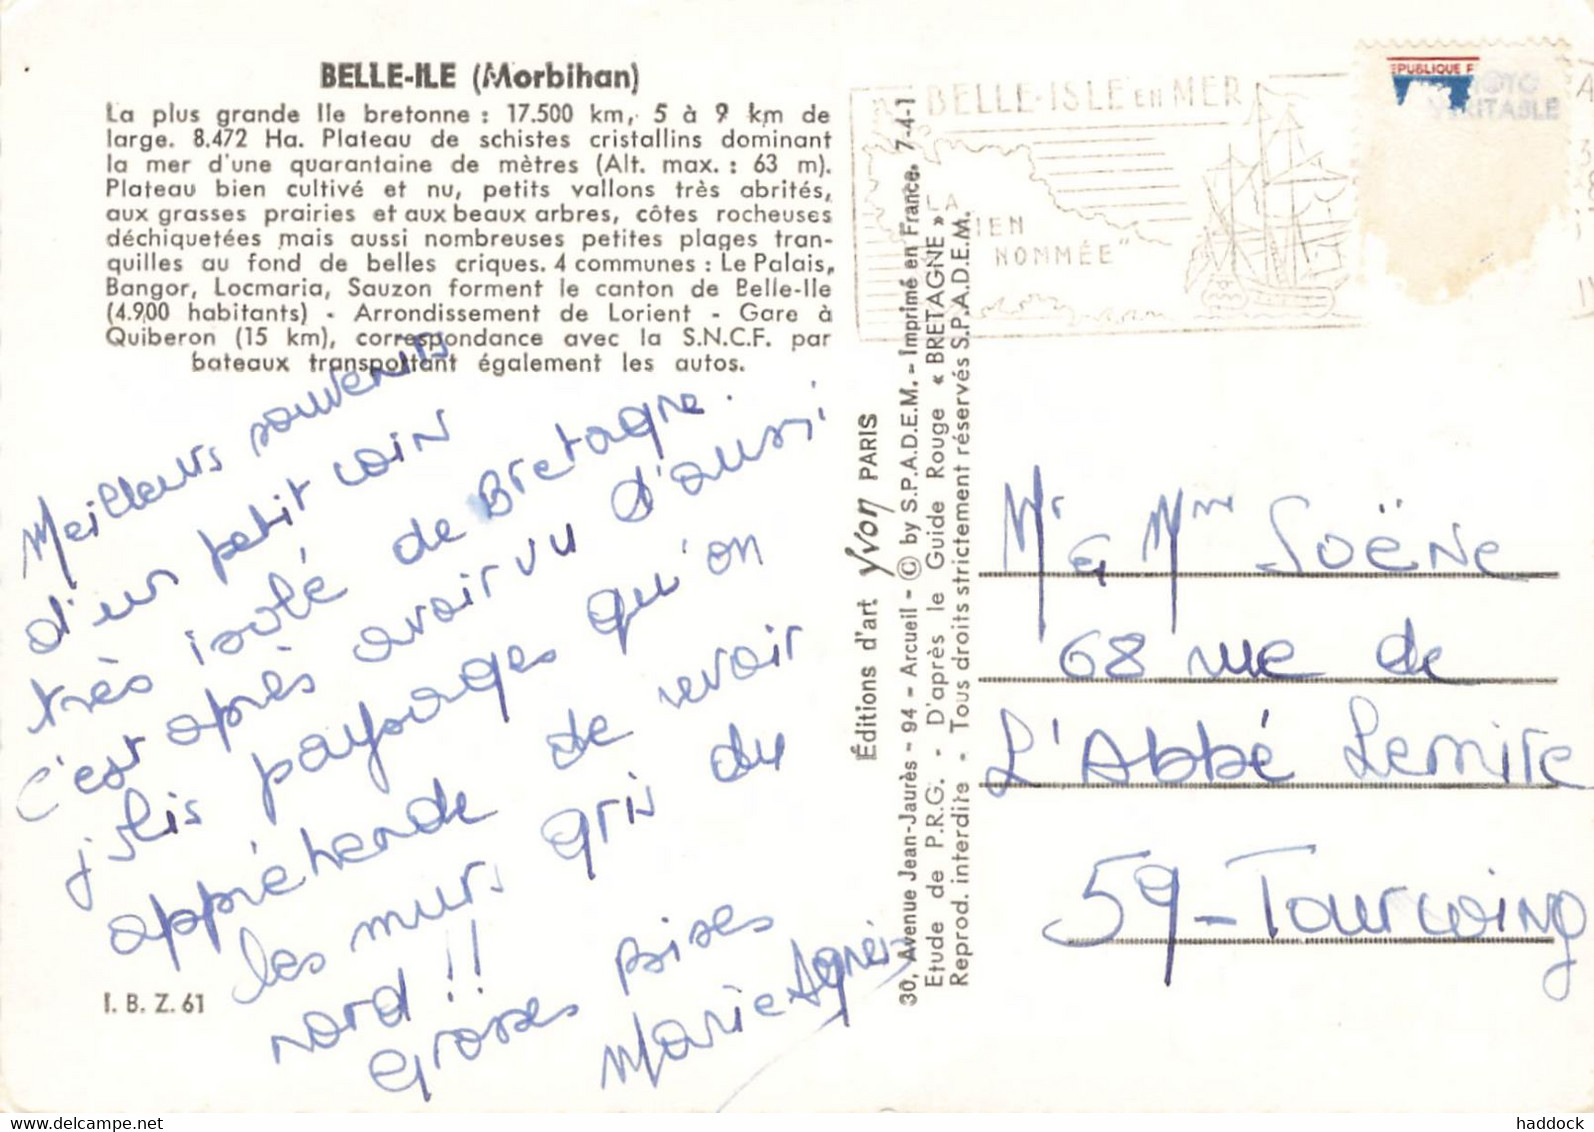 BELLE-ILE (Morbihan)
La plus grande Ile bretonne : 17.500 km, 5 à 9 km de
large. 8.472 Ha. Plateau de schistes cristallins dominant
la mer d'une quarantaine de mètres (Alt. max. : 63 m).
Plateau bien cultivé et nu, petits vallons très abrités,
aux grasses prairies et aux beaux arbres, côtes rocheuses
déchiquetées mais aussi nombreuses petites plages tran-
quilles au fond de belles criques. 4 communes : Le Palais,
Bangor, Locmaria, Sauzon forment le canton de Belle-Ile
(4.900 habitants) - Arrondissement de Lorient - Gare à
Quiberon (15 km), correspondance avec la S.N.C.F. par
bateaux transportant également les autos.
Meilleurs souvenirs
d'un petit coin
très isolé de Bretagne.
c'est après avoir vu d'aussi
jolis paysages qu'on
appréhende de revoir
les murs gris du
nord !!
Grosses bises
Marie Agnès
I. B. Z. 61
Éditions d'art Yvon PARIS
30, Avenue Jean-Jaurès - 94 - Arcueil - © by S.P.A.D.E.M. - Imprimé en France. 7-4-1
Etude de P.R.G. - D'après le Guide Rouge « BRETAGNE »
Reprod. interdite - Tous droits strictement réservés S.P.A.D.E.M.
BELLE-ISLE en MER
LA
BIEN
NOMMÉE"
EPUBLIQUE F
PHOTO
VERITABLE
Mr & Mme Soëne
68 rue de
L'Abbé Lemire
59-Tourcoing
haddock